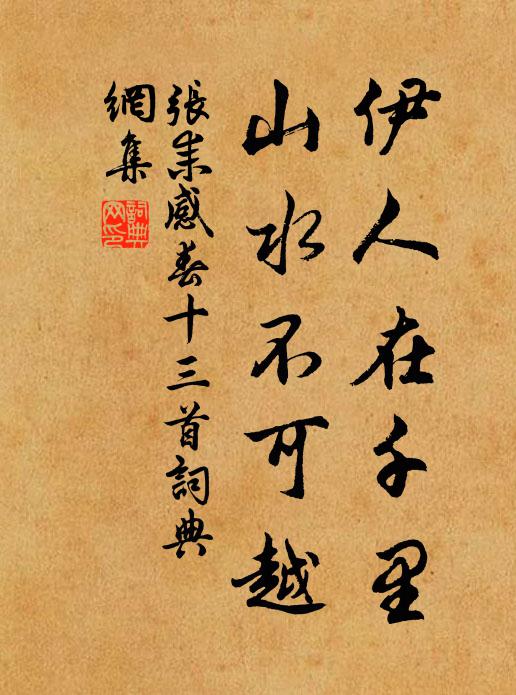 伊人在千里
山水不可越
張耒感春十三首詞典
網集
詞典
网印